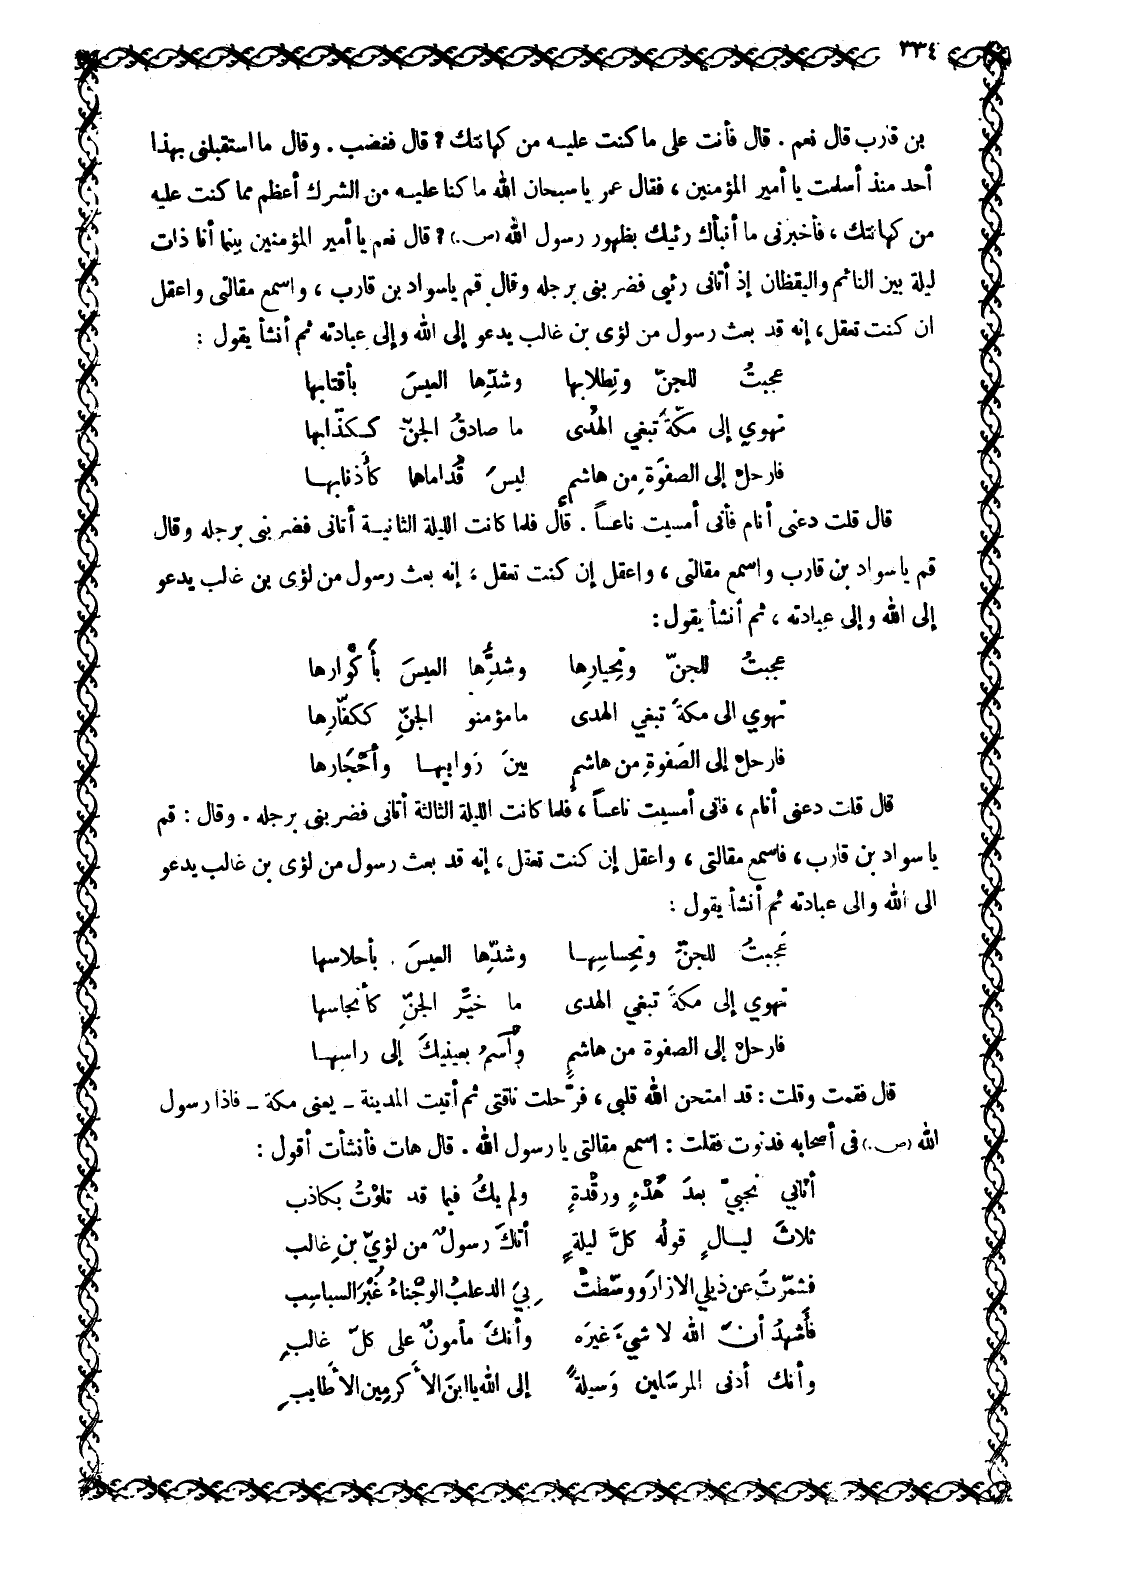 ٣٣٤
بن قارب قال نعم . قال فأنت على ما كنت عليه من كهانتك ؟ قال فغضب . وقال ما استقبلني بهذا
أحد منذ أسلمت يا أمير المؤمنين ، فقال عمر يا سبحان الله ما كنا عليه من الشرك أعظم مما كنت عليه
من كهانتك ، فأخبرني ما أنبأك رئيك بظهور رسول الله (ص.) ؟ قال نعم يا أمير المؤمنين بينما أنا ذات
ليلة بين النائم واليقظان إذ أتاني رئيي فضربني برجله وقال قم ياسواد بن قارب ، واسمع مقالتي واعقل
ان كنت تعقل، إنه قد بعث رسول من لؤى بن غالب يدعو إلى الله وإلى عبادته ثم أنشأ يقول :
عجبتُ للجنّ وتِطلابها وشدِّها العيسَ بأقتابها
تهوي إلى مكّةَ تبغي الهُدى ما صادقُ الجنّ ككذّابها
فارحل إلى الصفوَةِ من هاشمٍ ليسَ قُداماها كأذنابها
قال قلت دعني أنام فأنى أمسيت ناعساً . قال فلما كانت الليلة الثانية أتاني فضربني برجله وقال
قم ياسواد بن قارب واسمع مقالتي ، واعقل إن كنت تعقل ، إنه بعث رسول من لؤى بن غالب يدعو
إلى الله وإلى عبادته ، ثم أنشأ يقول :
عجبتُ للجنّ وتحيارِها وشدِّها العيسَ بأكْوارها
تهوي الى مكةَ تبغي الهدى مامؤمنو الجنِّ ككفّارِها
فارحل إلى الصَفوةِ من هاشمٍ بينَ رَوابيها وأحْجَارها
قال قلت دعني أنام ، فأنى أمسيت ناعساً ، فلما كانت الليلة الثالثة أتاني فضربني برجله . وقال : قم
ياسواد بن قارب ، فاسمع مقالتي ، واعقل إن كنت تعقل ، إنه قد بعث رسول من لؤى بن غالب يدعو
الى الله والى عبادته ثم أنشأ يقول :
عَجبتُ للجنّ وتحِساسِها وشدِّها العيسَ بأحلاسها
تهوي إلى مكةَ تبغي الهدى ما خيَّر الجنِّ كأنجاسها
فارحل إلى الصفوة من هاشمٍ وآسمُ بعينيكَ إلى راسها
قال فقمت وقلت : قد امتحن الله قلبي ، فرحّلت ناقتي ثم أتيت المدينة ـ يعنى مكة ـ فاذا رسول
الله (ص.) فى أصحابه فدنوت فقلت : اسمع مقالتي يا رسول الله . قال هات فأنشأت أقول :
أتاني نجيّ بعدَ هُدْءٍ ورقْدةٍ ولم يكُ فيما قد تلوْتُ بكاذب
ثلاثَ ليالٍ قولُه كلَّ ليلةٍ أتكَ رسولٌ من لؤيّ بنِ غالب
فشمّرتُ عن ذيلي الازارَ ووسّطتْ بيَ الدعلبُ الوجْناءُ غُبْرَ السباسِب
فأشهدُ أنّ الله لا شيءَ غيرَه وأنكَ مأمونٌ على كلّ غالبِ
وأنك أدنى المرسَلين وَسيلةً إلى الله يا ابنَ الأكرمين الأطايبِ